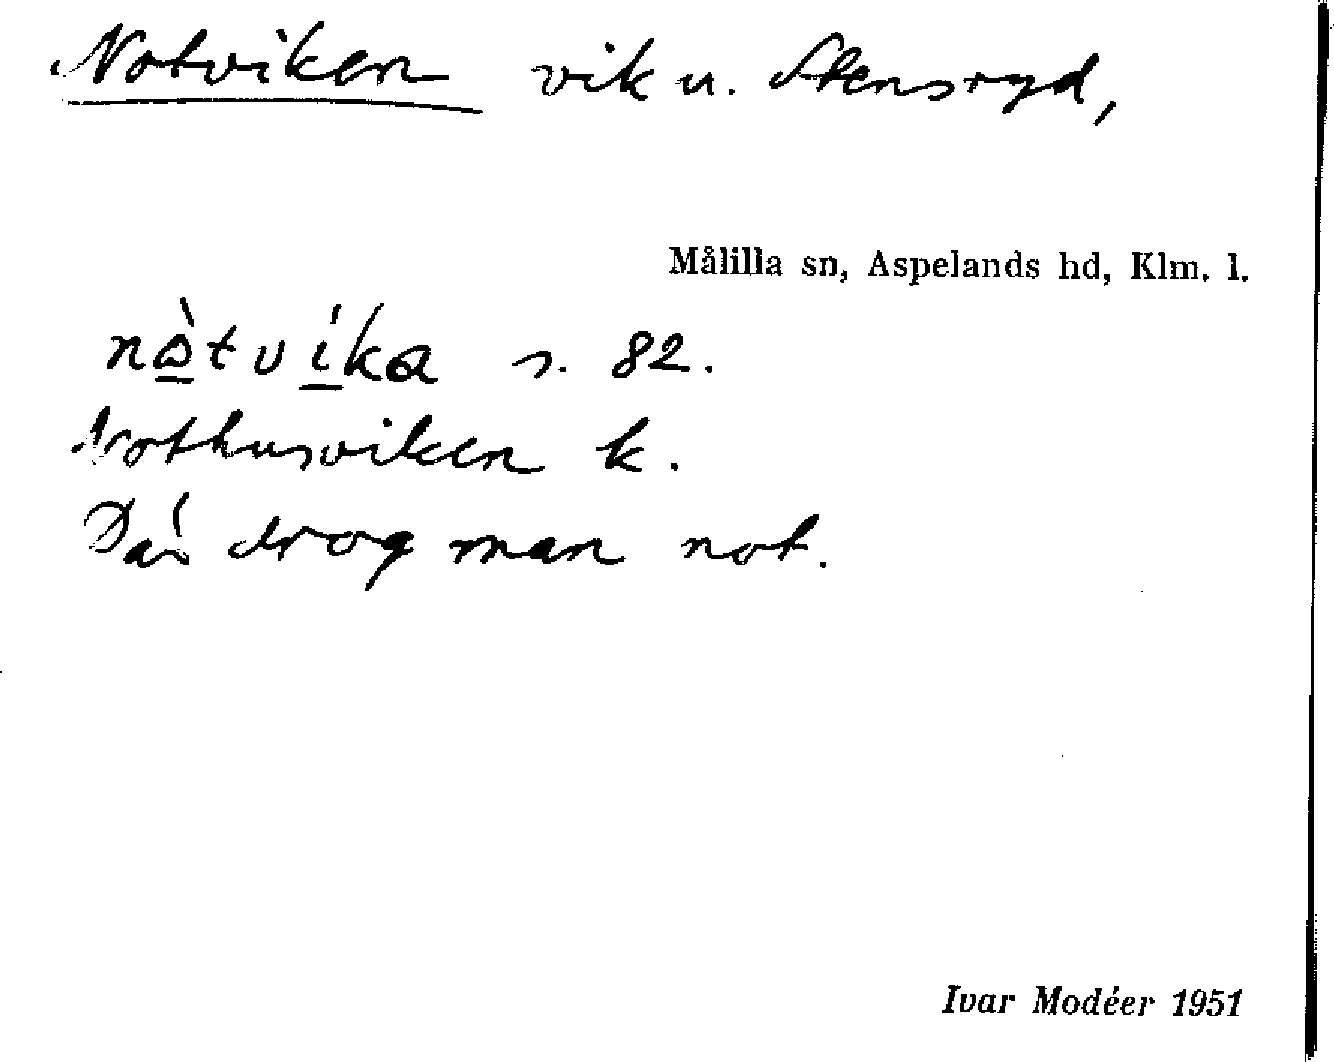 Notviken vik u. Stensryd,
Målilla sn, Aspelands hd, Klm. l.
nòtvíka s. 82.
Nothusviken k.
Där drog man not.
Ivar Modéer 1951